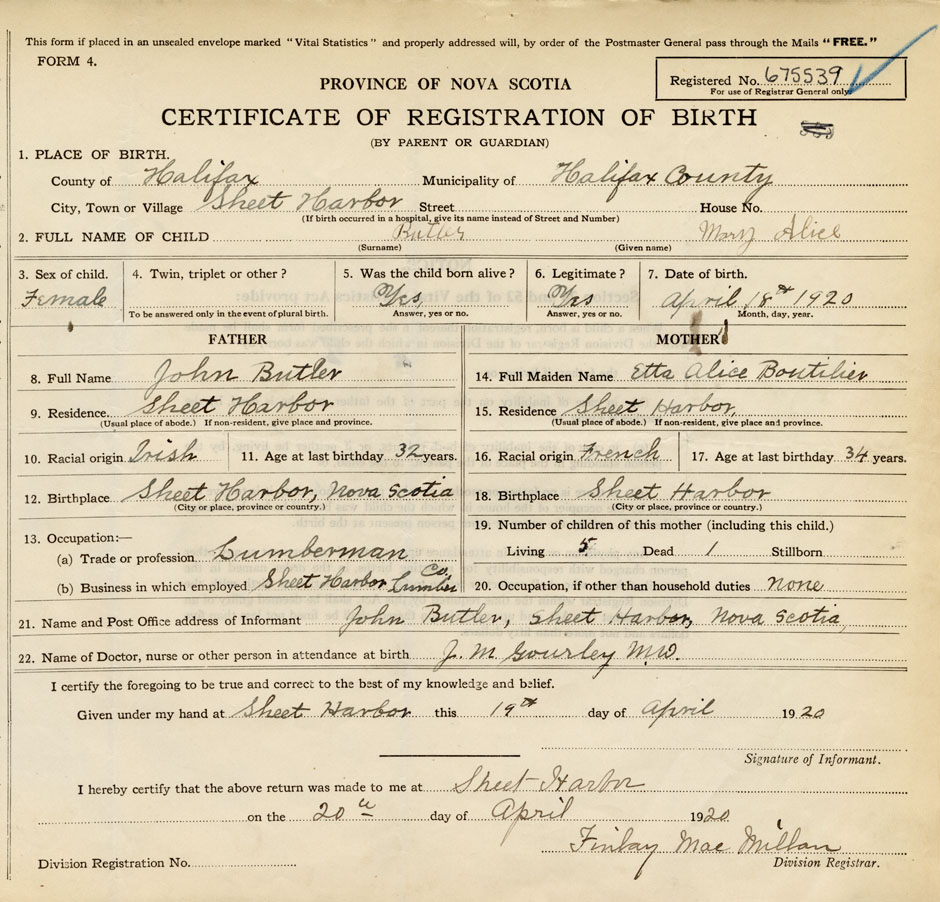 This form if placed in an unsealed envelope marked "Vital Statistics" and properly addressed will, by order of the Postmaster General pass through the Mails "FREE."
FORM 4.
Registered No. 675539
For use of Registrar General only.
PROVINCE OF NOVA SCOTIA
CERTIFICATE OF REGISTRATION OF BIRTH
(BY PARENT OR GUARDIAN)
1. PLACE OF BIRTH.
County of Halifax Municipality of Halifax County
City, Town or Village Sheet Harbor Street House No.
(If birth occurred in a hospital, give its name instead of Street and Number)
2. FULL NAME OF CHILD Butler Mary Alice
(Surname) (Given name)
3. Sex of child. 4. Twin, triplet or other? 5. Was the child born alive? 6. Legitimate? 7. Date of birth.
Female Yes Yes April 18th 1920
To be answered only in the event of plural birth. Answer, yes or no. Answer, yes or no. Month, day, year.
FATHER
8. Full Name John Butler
9. Residence Sheet Harbor
(Usual place of abode.) If non-resident, give place and province.
10. Racial origin Irish 11. Age at last birthday 32 years.
12. Birthplace Sheet Harbor, Nova Scotia
(City or place, province or country.)
13. Occupation:—
(a) Trade or profession Lumberman
(b) Business in which employed Sheet Harbor Lumber Co.
MOTHER
14. Full Maiden Name Etta Alice Boutilier
15. Residence Sheet Harbor
(Usual place of abode.) If non-resident, give place and province.
16. Racial origin French 17. Age at last birthday 34 years.
18. Birthplace Sheet Harbor
(City or place, province or country.)
19. Number of children of this mother (including this child.)
Living 5 Dead 1 Stillborn
20. Occupation, if other than household duties none
21. Name and Post Office address of Informant John Butler, Sheet Harbor, Nova Scotia
22. Name of Doctor, nurse or other person in attendance at birth J. M. Gourley
I certify the foregoing to be true and correct to the best of my knowledge and belief.
Given under my hand at Sheet Harbor this 19th day of April 1920
Signature of Informant.
I hereby certify that the above return was made to me at Sheet Harbor
on the 20th day of April 1920
Finlay Mac Millan
Division Registration No. Division Registrar.